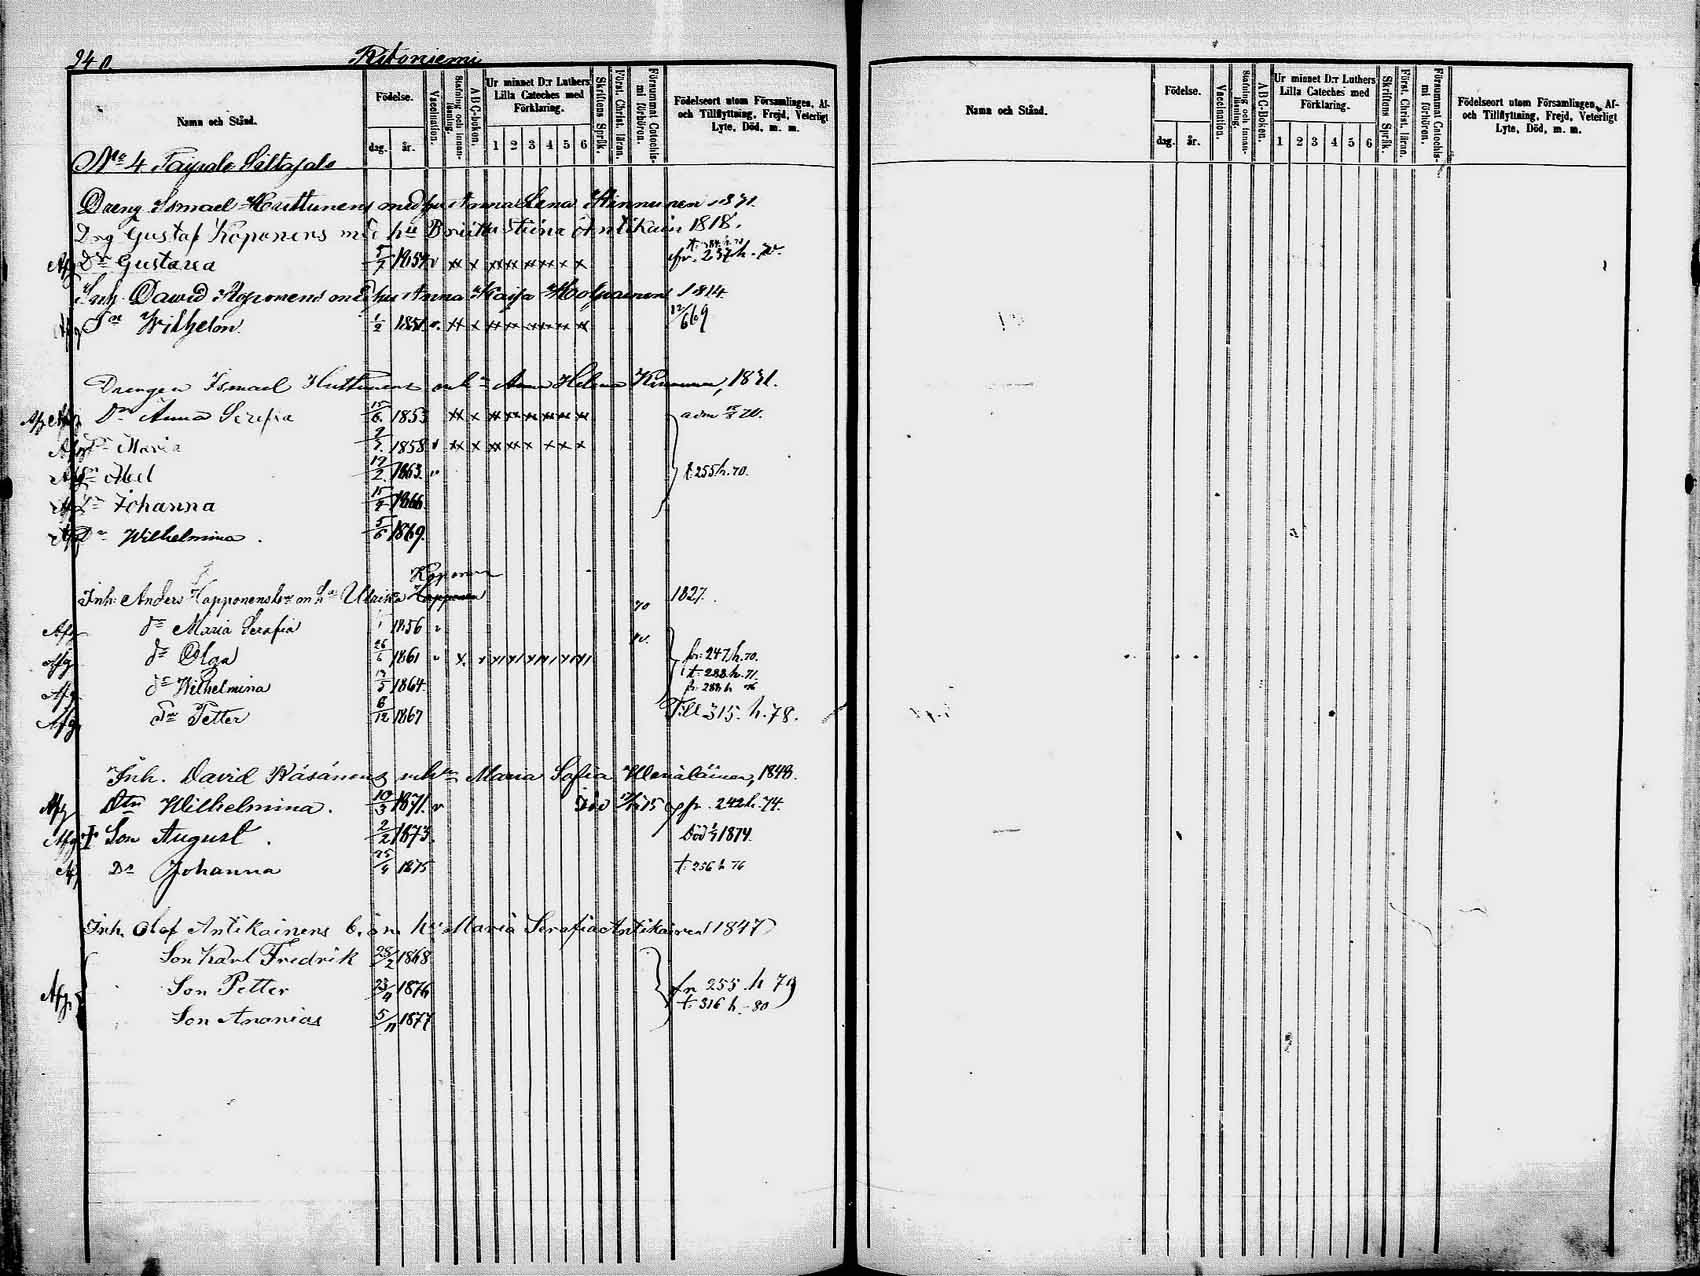 240. Ritoniemi
Namn och Stånd.
Födelse.
dag. år.
Vaccination.
Stafning och innan-läsning.
A B C-boken.
Ur minnet D:r Luthers Lilla Cateches med Förklaring.
1 2 3 4 5 6
Skriftens Språk.
Först. Christ. läran.
Försummat Catechismi förhören.
Födelseort utom Församlingen, Af- och Tillflyttning, Frejd, Veterligt Lyte, Död, m. m.
No 4
Dreng Ismael Huttunens med hu Anna Lena Kinnunen 1831.
Drg Gustaf Koponens med hu Britta Stina Antikain 1818.
Afg Dr Gustava 5/7 1854 v fr. 257 h.
Inh. David Koponens med hu Anna Kaisa Holpainens 1814.
Sn Wilhelm 1/2 1851 v. 12/6 69
Drengen Ismael Huttunens m h Anna Helena Kinnunen, 1831.
Afg Dr Anna Serefia 15/6 1853 adm 70.
Afg Dr Maria 1858 v
Afg Sn Abel 19/2 1863 v t. 255 h. 70.
Dr Johanna 15/4 1866
Dr Wilhelmina. 5/6 1869.
Koponen
Inh: Anders Happonens m h Ulrika Happonen 70 1827.
Afg dr Maria Serafia 1856 v
Afg dr Olga 26/6 1861 v fr. 247 h. 70.
t. 288 h. 71.
Afg dr Wilhelmina 1864. fr. 288 h 76
Afg Sn Petter 6/12 1867 Till 315. h. 78.
Inh. David Räsänens m h Maria Sofia Wenäläinen, 1848.
Afg Dtr Wilhelmina. 10/3 1871. v fr. 242 h. 74.
Afg † Son August. 2/2 1873. Död 1874.
Af Dr Johanna 25/4 1875 t. 256 h 76
Inh. Olof Antikainens b. o m hu Maria Serafia Antikainen 1847
Son Karl Fredrik 28/2 1868
Afg Son Petter 23/4 1876 fr 255. h 79
t. 316 h. -80
Son Ananias 5/11 1877
Namn och Stånd.
Födelse.
dag. år.
Vaccination.
Stafning och innan-läsning.
A B C-Boken.
Ur minnet D:r Luthers Lilla Cateches med Förklaring.
1 2 3 4 5 6
Skriftens Språk.
Först. Christ. läran.
Försummat Catechismi förhören.
Födelseort utom Församlingen, Af- och Tillflyttning, Frejd, Veterligt Lyte, Död, m. m.